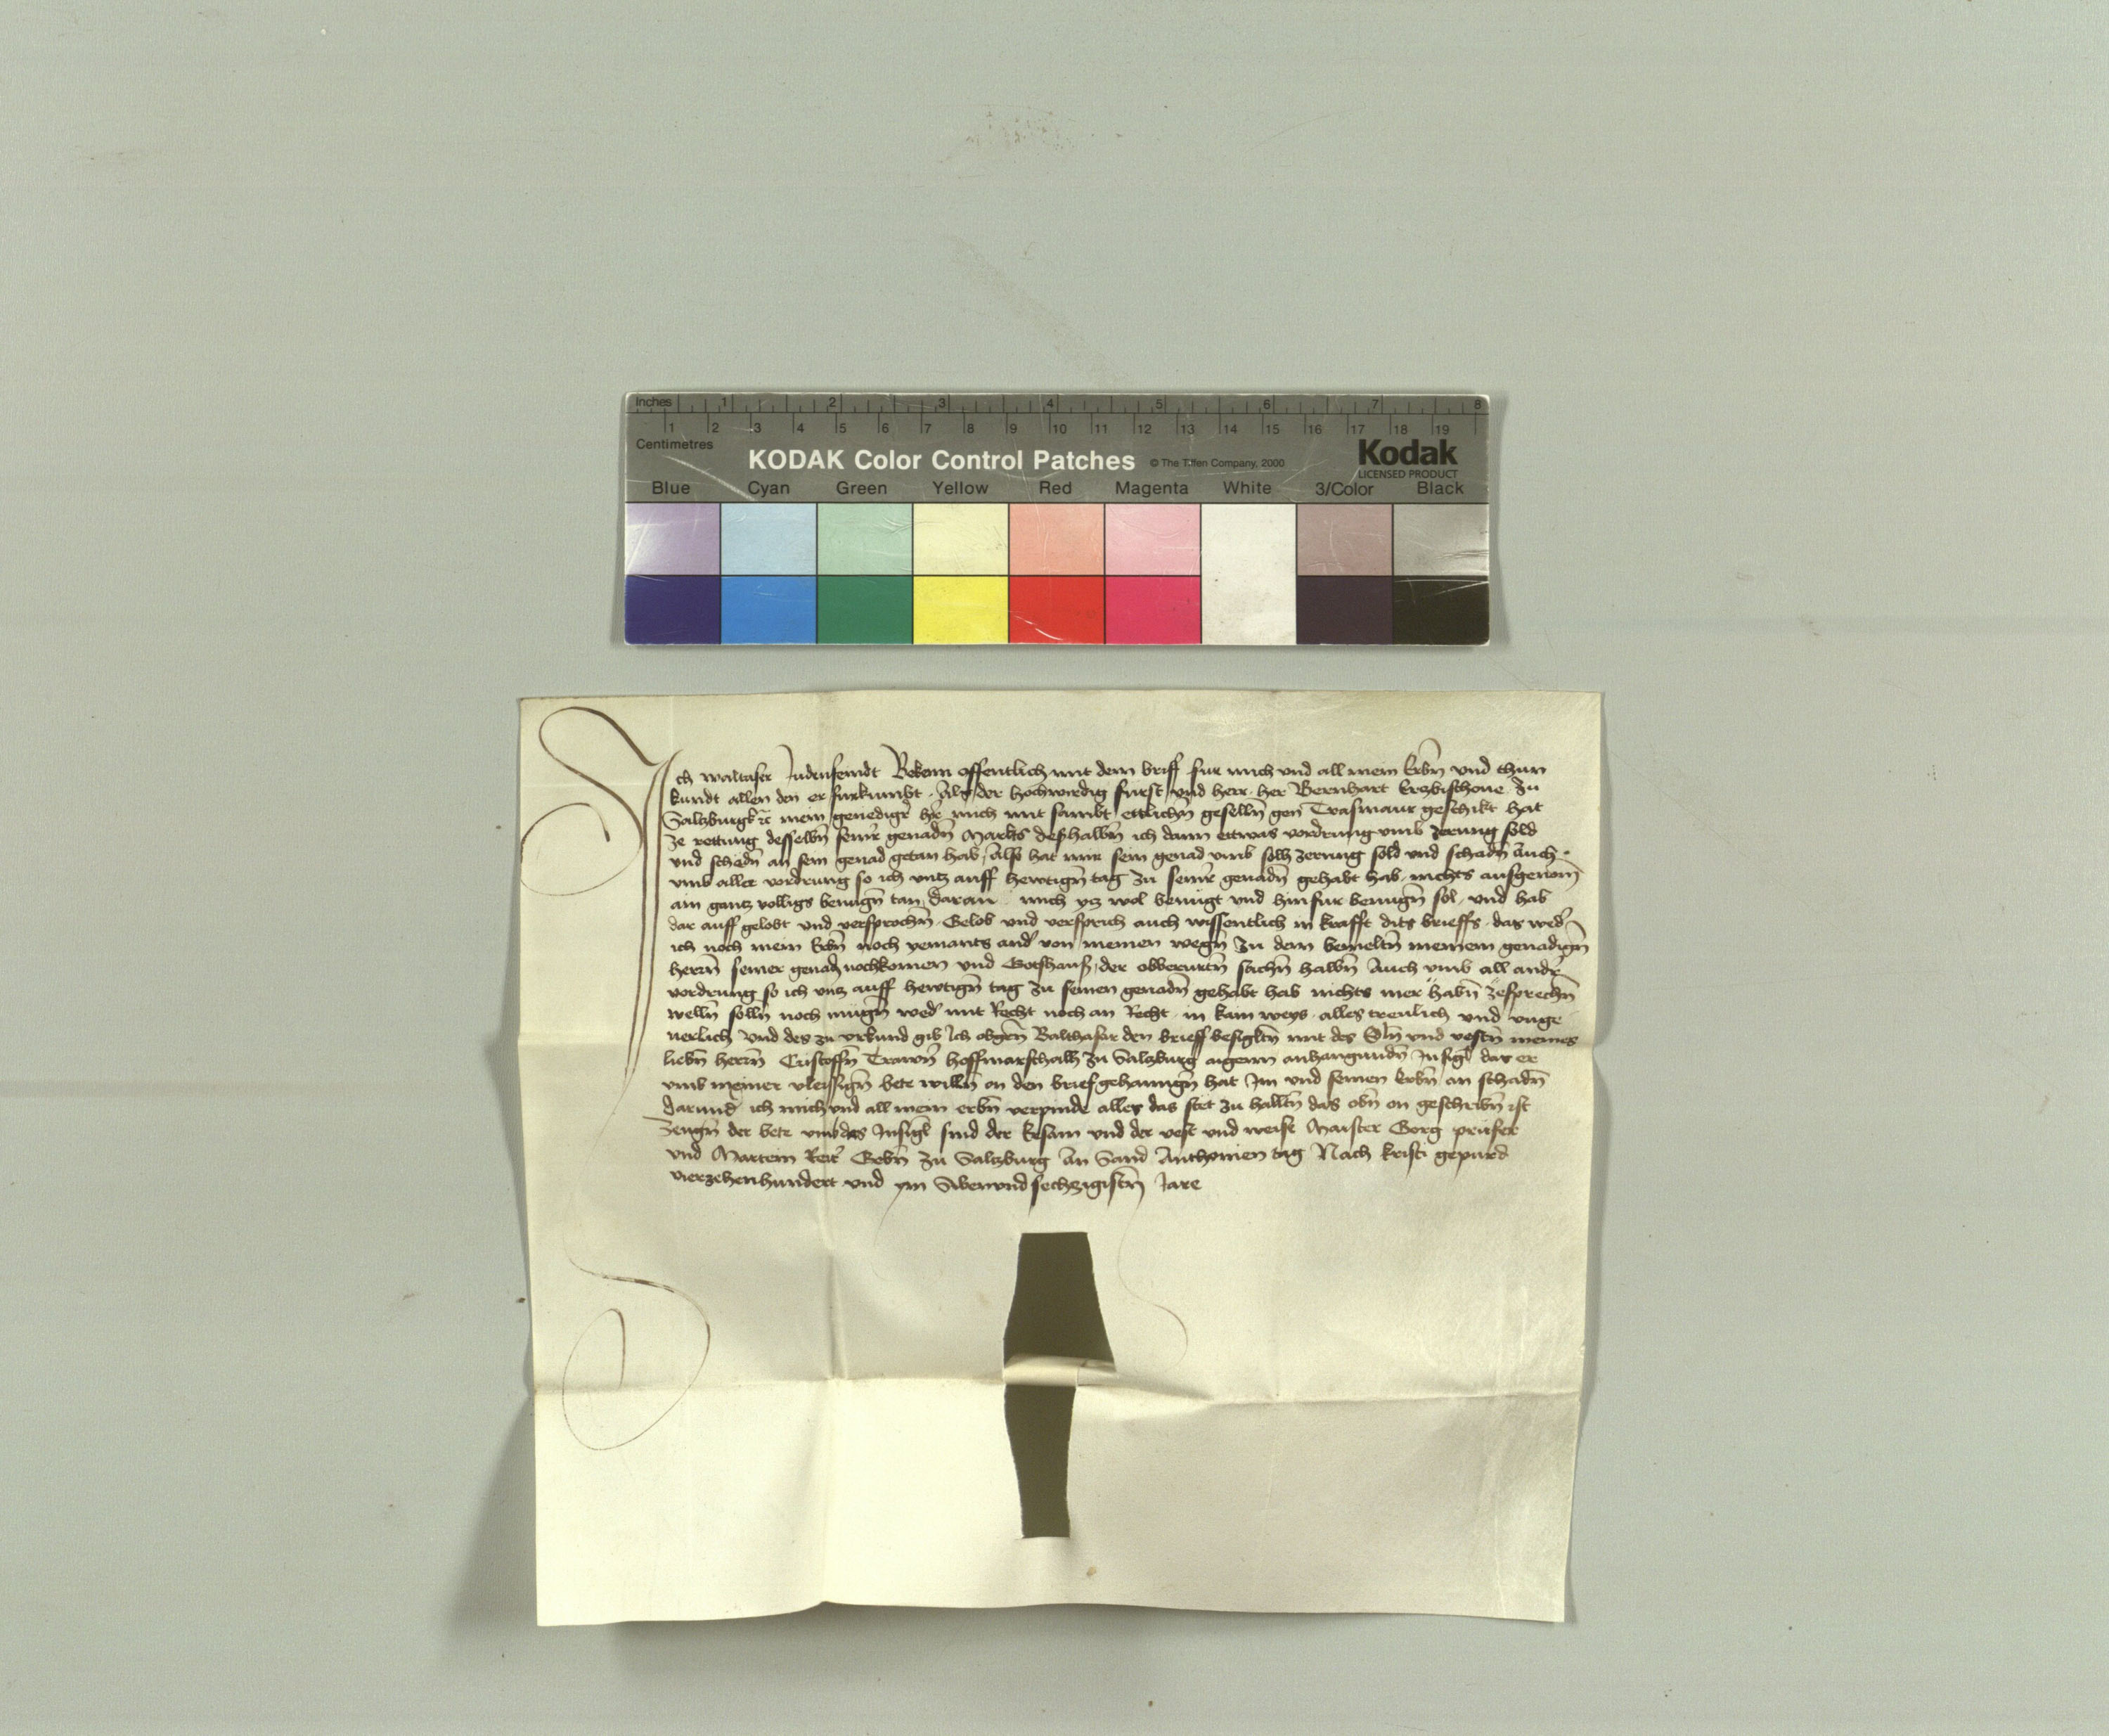 Inches 1 2 3 4 5 6 7 8
1 2 3 4 5 6 7 8 9 10 11 12 13 14 15 16 17 18 19
Centimetres
KODAK Color Control Patches © The Tiffen Company, 2000 Kodak
LICENSED PRODUCT
Blue Cyan Green Yellow Red Magenta White 3/Color Black
Ich waltasar Judenfemdt Bekenn offentlich mit dem brieff fur mich und all mein Erbn̄ und thun
kundt allen den er furkumbt · Als der hochwirdig furst und herr her Bernhart Erzbischove zu
Salzburgk ꝛc mein genediger her mich mit sambt ettlichn̄ geselln̄ gen Trasmaur geschikt hat
ze rettung desselbn̄ seinr genadn̄ Markts deßhalbn̄ ich dann ettwas vordrung umb zerung sold
und schedn̄ an sein genad getan hab, Also hat mir sein genad umb solh zerung sold und schadn̄ Auch ·
umb aller vordrung so ich untz auff hewtign̄ tag zu seinr genadn̄ gehabt hab nichts ausgenom̄
ain gantz volligs benugn̄ tan daran mich ytz wol benugt und hinfur benugn̄ sol, und hab
dar auff gelobt und versprochn̄ Gelob und versprich auch wissentlich in krafft dits brieffs · das wed'
ich noch mein Erbn̄ noch yemants and' von meinen wegn̄ zu dem bemeltn̄ meinem genadign̄
herrn̄ seiner genadn̄ nochkomen und Gotshauß, der obberurtn̄ sachn̄ halbn̄ Auch umb all andr
vordrung so ich untz auff hewtign̄ tag zu seinen genadn̄ gehabt hab nichts mer habn̄ zesprechn̄
welln̄ solln̄ noch mügn̄ wed' mit Recht noch an Recht · in kain weys · alles trewlich und unge
uerlich Und des zu urkund gib Ich obgen̄ Balthasar den brieff besigltn̄ mit des Edln̄ und vestn̄ meines
liebn̄ herrn̄ Cristoffn̄ Trawn̄ hoffmarschalh zu Salzburg aigenn anhangundn̄ Insigl das er
umb meiner vleissign̄ bete willn̄ an den brief gehanngn̄ hat Im und seinen Erbn̄ an schadn̄
Darund' ich mich und all mein erbn̄ verpinde alles das stet zu haltn̄ das obn̄ an geschribn̄ ist
Zeugn̄ der bete umb das Insigl sind der Ersam und der vest und weise Maister Gorg prufer
und Martein Reit' Gebn̄ zu Salzburg An Sand Anthonien tag Nach kristi gepurd
vierzehenhundert und ym Sibenundsechzigistn̄ Jare